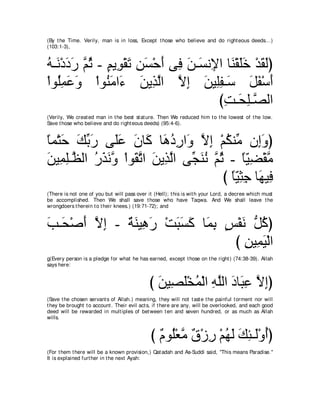 (By the Time. Verily, man is in loss, Except those who believe and do righteous deeds...)
(103:1-3),
(لَقَدْ خَلَقْنَا الإِنسَـنَ فِى أَحْسَنِ تَقْوِيمٍ - ثُمَّ رَدَدْنَـهُ
أَسْفَلَ سَـفِلِينَ إِلاَّ الَّذِينَ ءَامَنُواْ وَعَمِلُواْ
الصَّـلِحَـتِ)
(Verily, We created man in the best stature. Then We reduced him to the lowest of the low.
Save those who believe and do righteous deeds) (95:4-6),
(وَإِن مِّنكُمْ إِلاَّ وَارِدُهَا كَانَ عَلَى رَبِّكَ حَتْماً
مَّقْضِيّاً - ثُمَّ نُنَجِّى الَّذِينَ اتَّقَواْ وَّنَذَرُ الظَّـلِمِينَ
فِيهَا جِثِيّاً )
(There is not one of you but will pass over it (Hell); this is with your Lord, a decree which must
be accomplished. Then We shall save those who have Taqwa. And We shall leave the
wrongdoers therein to their knees.) (19:71-72); and
(كُلُّ نَفْسٍ بِمَا كَسَبَتْ رَهِينَةٌ - إِلاَّ أَصْحَـبَ
الْيَمِينِ )
g(Every person is a pledge for what he has earned, except those on the right) (74:38-39). Allah
says here:
(إِلاَّ عِبَادَ اللَّهِ الْمُخْلَصِينَ )
(Save the chosen servants of Allah.) meaning, they will not taste the painful torment nor will
they be brought to account. Their evil acts, if there are any, will be overlooked, and each good
deed will be rewarded in multiples of between ten and seven hundred, or as much as Allah
wills.
(أُوْلَـئِكَ لَهُمْ رِزْقٌ مَّعْلُومٌ )
(For them there will be a known provision,) Qatadah and As-Suddi said, "This means Paradise."
It is explained further in the next Ayah: